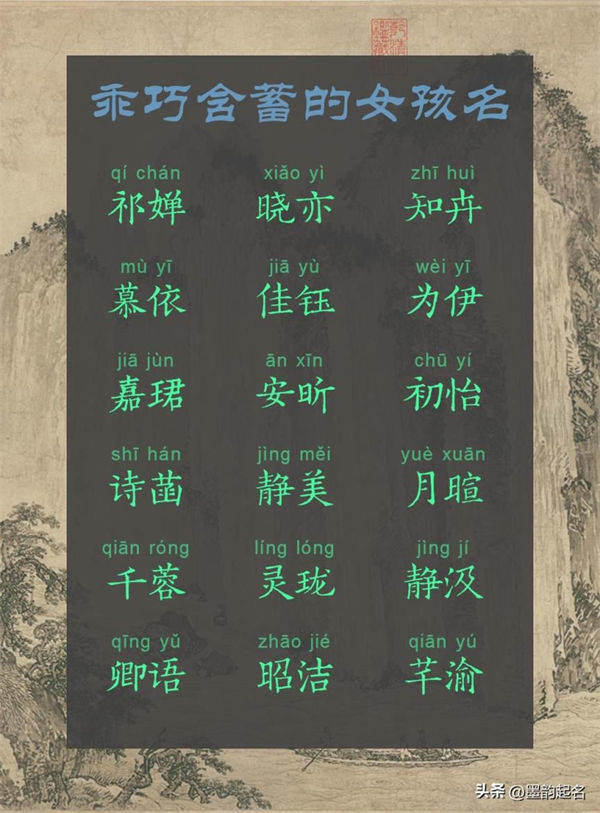 乖巧含蓄的女孩名
qí chán xiǎo yì zhī huì
祁婵 晓亦 知卉
mù yī jiā yù wèi yī
慕依 佳钰 为伊
jiā jùn ān xīn chū yí
嘉珺 安昕 初怡
shī hán jìng měi yuè xuān
诗菡 静美 月暄
qiān róng líng lóng jìng jí
千蓉 灵珑 静汲
qīng yǔ zhāo jié qiān yú
卿语 昭洁 芊渝
头条 @墨韵起名